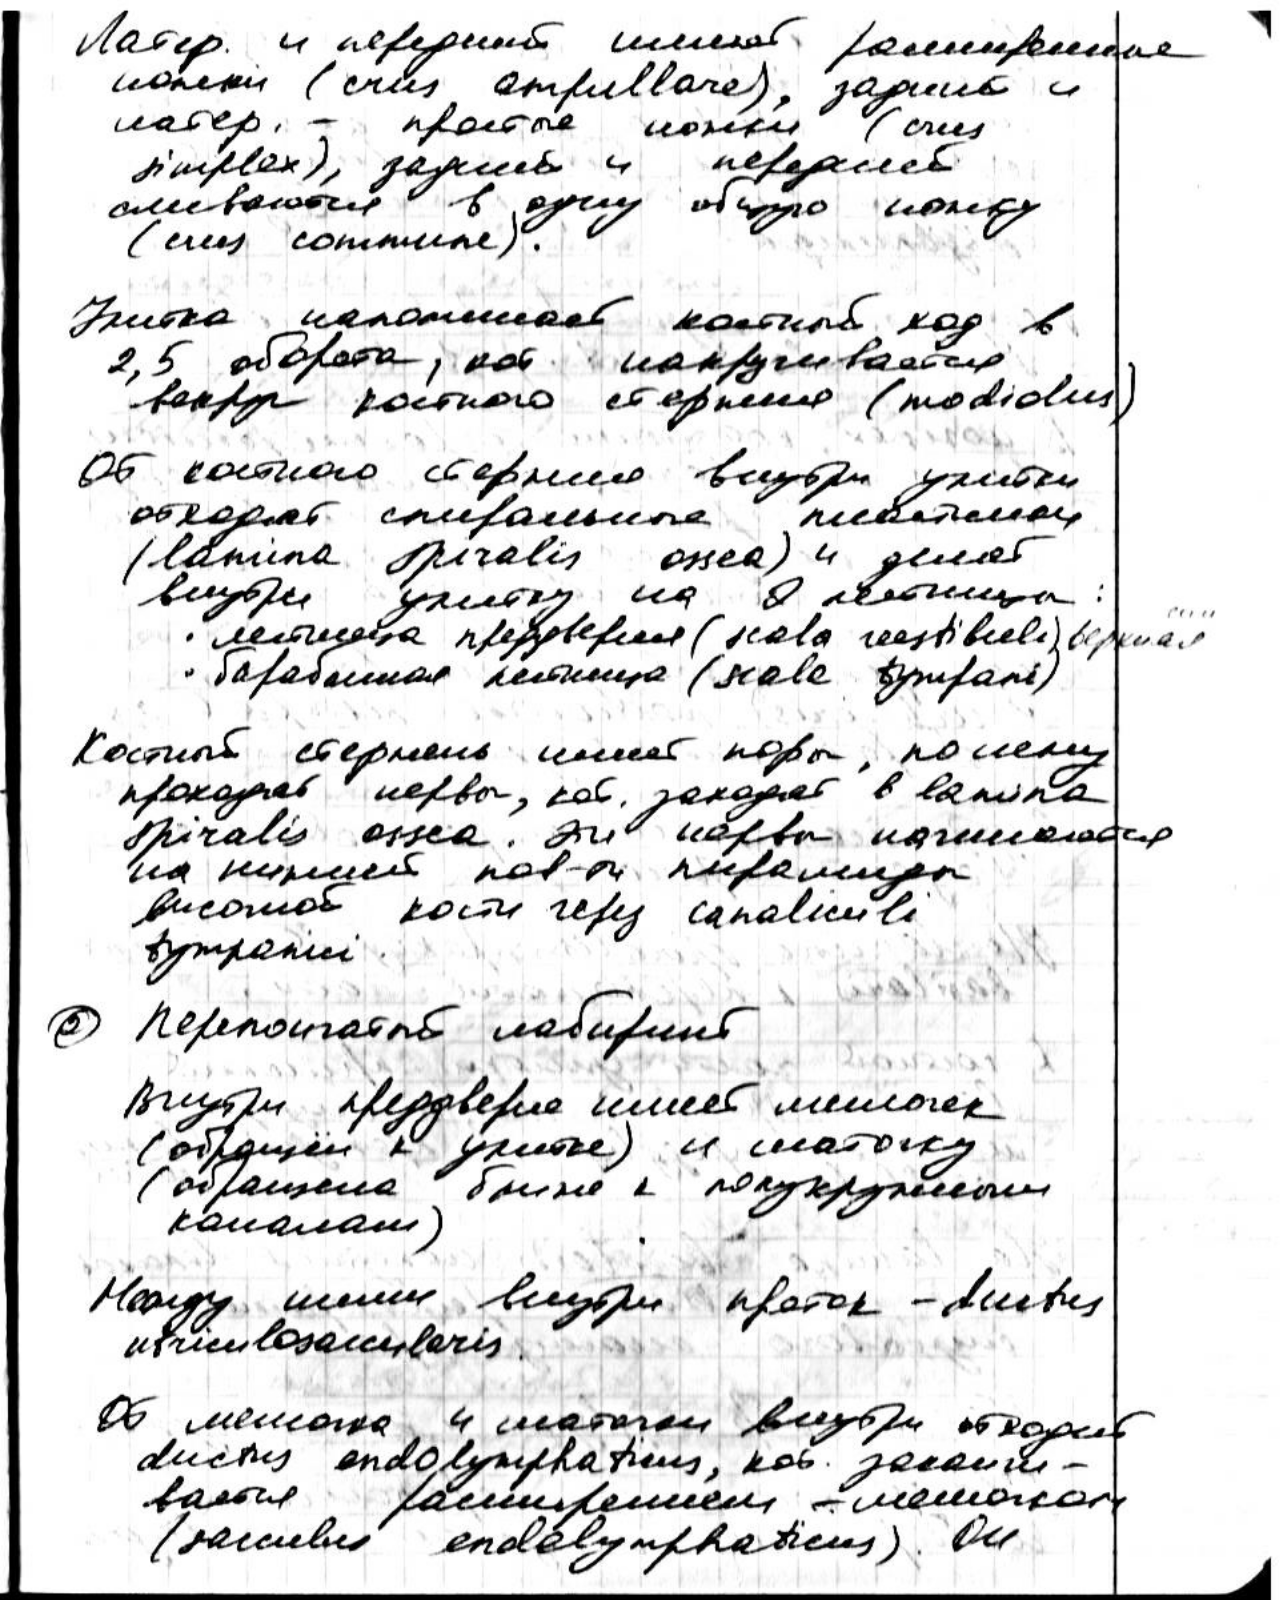 Латер. и передний имеют расширенные
ножки (crus ampullare), задний и
латер. - простые ножки (crus
simplex), задний и передний
сливаются в одну общую ножку
(crus commune).
Улитка напоминает костный ход в
2,5 оборота, кот накручивается
вокруг костного стержня (modiolus)
От костного стержня внутри улитки
отходят спиральные пластинки
(lamina spiralis ossea) и делят
внутри улитку на 2 лестницы:
• лестница преддверия (scala vestibuli) верхняя
• барабанная лестница (scala tympani)
Костный стержень имеет поры, по нему
проходят нервы, кот. заходят в lamina
spiralis ossea. Эти нервы начинаются
на нижней пов-ти пирамиды
височной кости через canaliculi
tympanici.
② Перепончатый лабиринт
Внутри преддверие имеет мешочек
(обращен к улитке) и маточку
(обращена ближе к полукружным
каналам)
Между ними внутри проток - ductus
utriculosaccularis.
От мешочка и маточки внутри отходит
ductus endolymphaticus, кот. заканчи-
вается расширением - мешочком
(sacculus endolymphaticus). Он